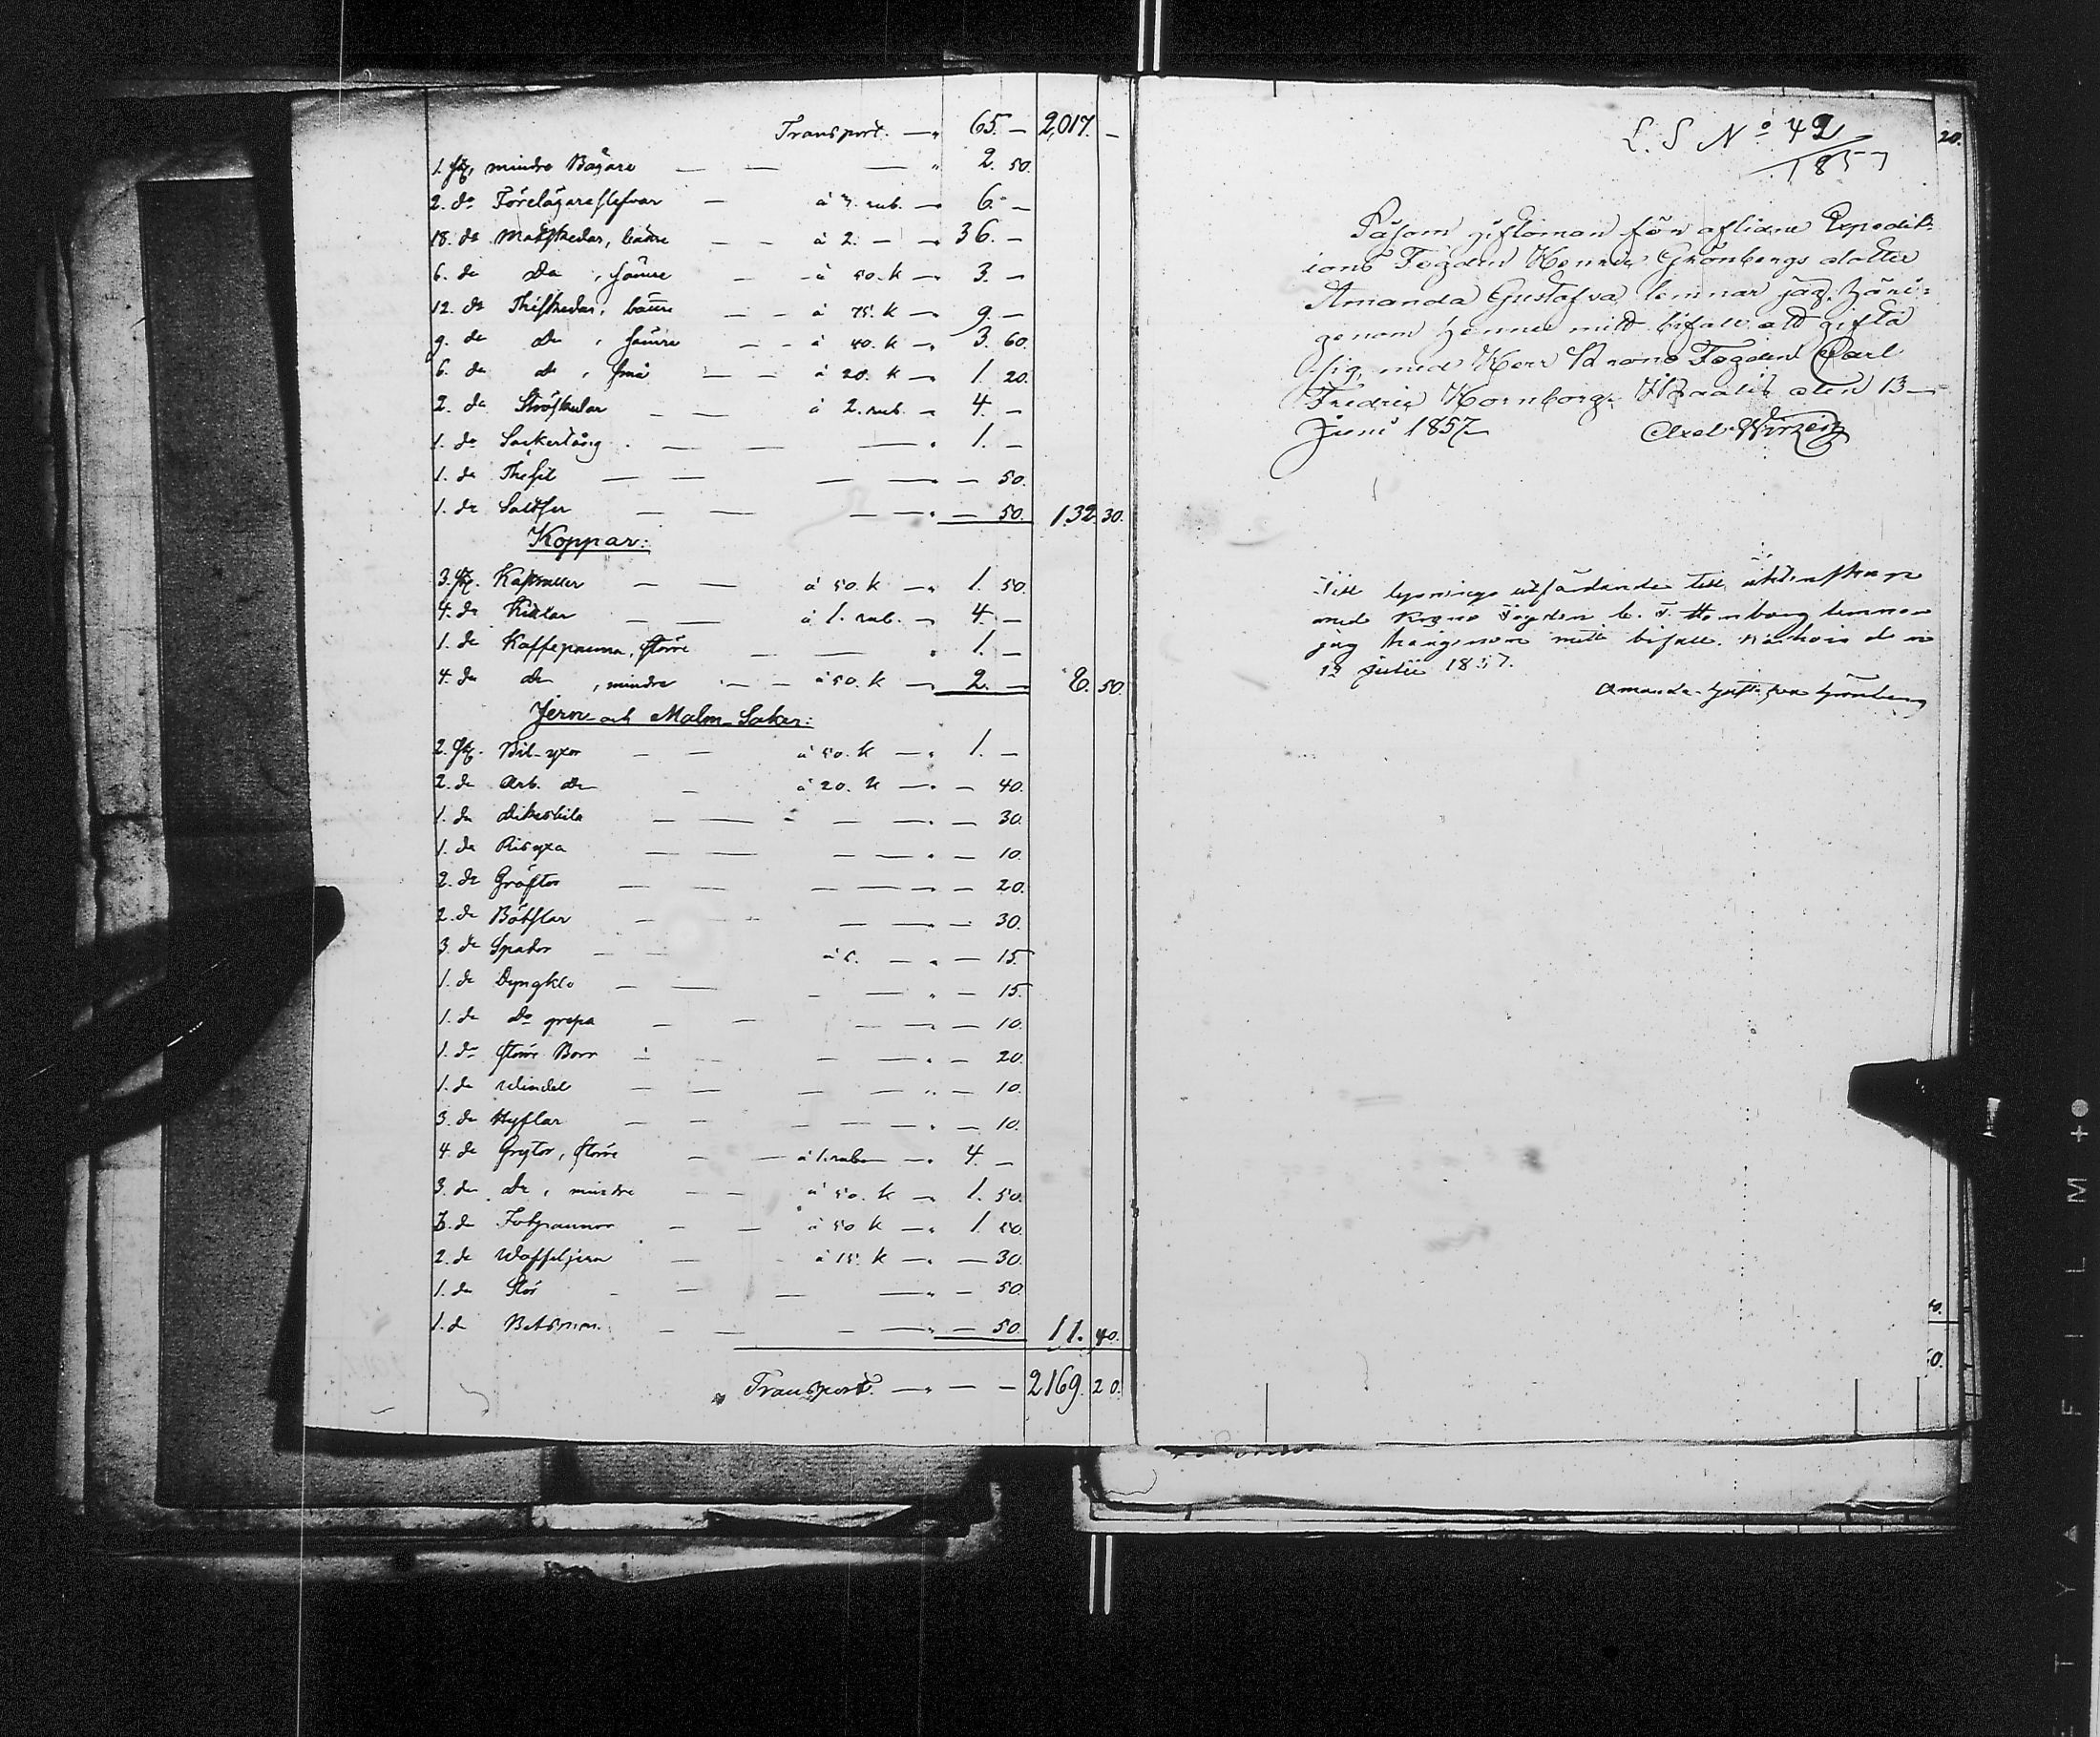 Transport. — 65. — 2,017. —
1. st. mindre Bägare — — — 2. 50.
2. do Föreläggareslefvar — à 3. rub. — 6. —
18. do Matskedar, bättre — — à 2. — — 36. —
6. do do, sämre — à 50. k — 3. —
12. do Theskedar, bättre — — à 75. k — 9. —
9. do do, sämre — — à 40. k — 3. 60.
6. do do, små — — à 20. k — 1. 20.
2. do Ströskedar — — à 2. rub. — 4. —
1. do Sockertång — — — 1. —
1. do Thesil — — — — — 50.
1. do Saltsker — — — — — 50. 132. 30.
Koppar:
3. st. Kastruller — — à 50. k — 1. 50.
4. do Kittlar — — à 1. rub. — 4. —
1. do Kaffepanna, större — — 1. —
4. do do, mindre — — à 50. k — 2. — 8. 50.
Jern- och Malm-Saker:
2. st. Bil-yxor — — à 50. k — 1. —
2. do Arb. do — à 20. k — — 40.
1. do — — — — — 30.
1. do Risyxa — — — — — 10.
2. do Gräftor — — — — — 20.
2. do — — — — — 30.
3. do Spador — — à 5. — — 15.
1. do Dyngklo — — — — — 15.
1. do do grepa — — — — — 10.
1. do större Borr — — — — 20.
1. do Windel — — — — — 10.
3. do Hyflar — — — — — 10.
4. do Grytor, större — — à 1. rub — 4. —
3. do do, mindre — — à 50. k — 1. 50.
3. do Fotpannor — — à 50 k — 1. 50.
2. do Waffeljern — à 15. k — — 30.
1. do Stör — — — — 50.
1. do Betsman — — — — — 50. 11. 40.
Transport. — — — 2169. 20.
L. S No 42
1857
Såsom giftoman för aflidne Expedit-
ions Fogden Henric Grönbergs dotter
Amanda Gustafva lemnar jag häri-
genom henne mitt bifall att gifta
sig med Herr Krono Fogden Carl
Fredric Hornborg. den 13
Juni 1857. Axel Wirzen
Till lysnings utfärdande till äktenskap
med Krono Fogden C. F. Hornborg lemnar
jag härigenom mitt bifall. den
12 Julii 1857.
Amanda Gustafva Grönberg
20.